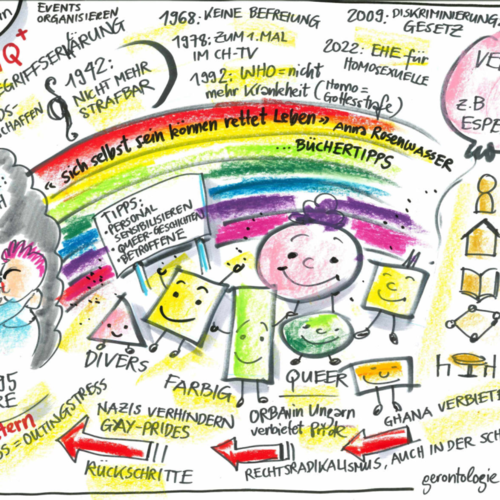 EVENTS
ORGANISIEREN
Q+
EGRIFFSERKLÄRUNG
OS-
CHAFFEN
§ 1942:
NICHT MEHR
STRAFBAR
1968: KEINE BEFREIUNG
1978: ZUM 1. MAL
IM CH-TV
1992: WHO = nicht
mehr Krankheit (Homo =
Gottesstrafe)
2009: DISKRIMINIERUNG
GESETZ
2022: EHE für
HOMOSEXUELLE
VE
z.B
ESPE
« Sich selbst sein können rettet Leben » Anna Rosenwasser
... BÜCHERTIPPS
TIPPS:
• PERSONAL
SENSIBILISIEREN
• QUEER-GESCHICHTEN
BETROFFENE
DIVERS
FARBIG
QUEER
95
RE
tern
SS = OUTINGSTRESS
NAZIS VERHINDERN
GAY-PRIDES
RÜCKSCHRITTE
ORBAN in Ungarn
verbietet Pride
GHANA VERBIETE
RECHTSRADIKALISMUS, AUCH IN DER SCH
gerontologie